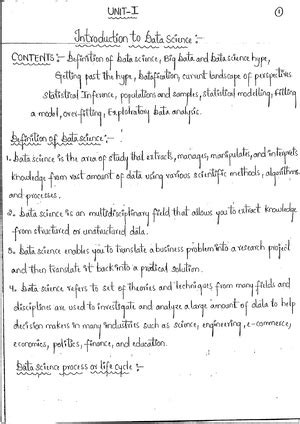 UNIT-I
1
Introduction to Data Science :-
CONTENTS :- Definition of Data science, Big Data and Data science hype,
Getting past the hype, Datafication, current landscape of perspectives
Statistical Inference, populations and samples, statistical modelling, fitting
a model, over-fitting, Exploratory Data analysis.
Definition of Data science :-
1. Data science is the area of study that extracts, manages, manipulates, and interprets
knowledge from vast amount of data using various scientific methods, algorithms
and processes.
2. Data science is an multidisciplinary field that allows you to extract knowledge
from structured or unstructured data.
3. Data science enables you to translate a business problem into a research project
and then translate it back into a pratical solution.
4. Data science refers to set of theories and techniques from many fields and
disciplines are used to investigate and analyze a large amount of data to help
decision makers in many industries such as science, engineering, e-commerce,
economics, politics, finance, and education.
Data science process or life cycle :-